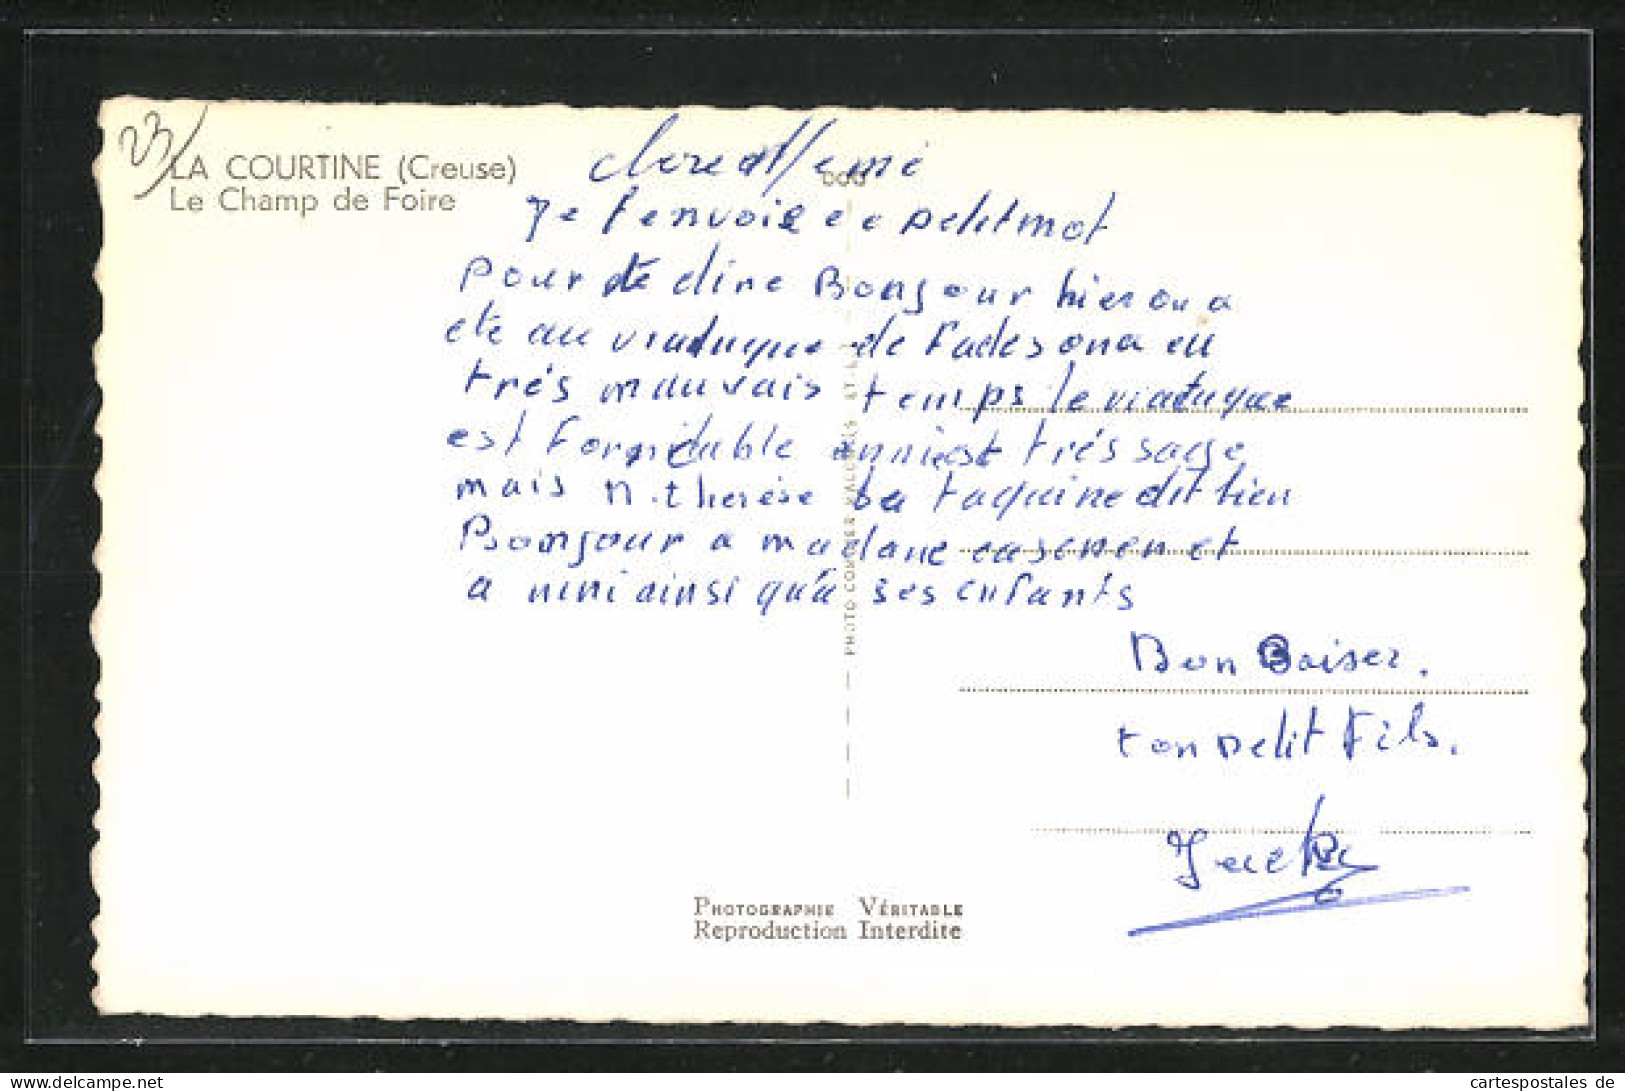 23/
LA COURTINE (Creuse)
Le Champ de Foire
chere Mémé
Je t'envoie ce petit mot
pour te dire Bonjour hier on a
eté au viaduque de Fades on a eu
trés mauvais temps le viaduque
est Formidable annie est trés sage
mais M. therése la taquine dit bien
Bonjour a madame casenen et
a mimi ainsi qu'a ses enfants
Bon Baiser.
ton petit Fils.
Jacky
PHOTO COMBIER
PHOTOGRAPHIE VÉRITABLE
Reproduction Interdite
cartespostales de
https://www.cartespostales.eu/